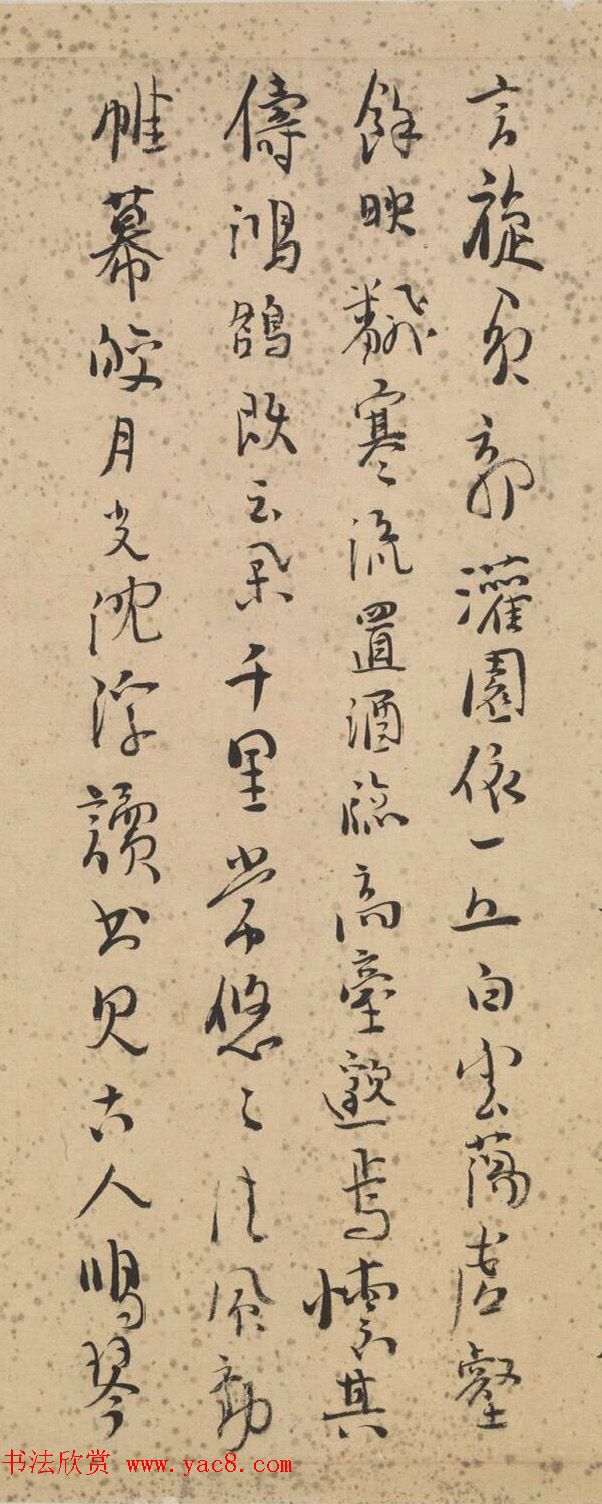 言旋負郭灌園依一丘白雲蕩虛壑
餘映飜寒流置酒臨高臺邈焉懷其
儔鴻鵠既云舉千里常悠〻清風動
帷幕皎月光沈浮讀書見古人鳴琴
书法欣赏 www.yac8.com